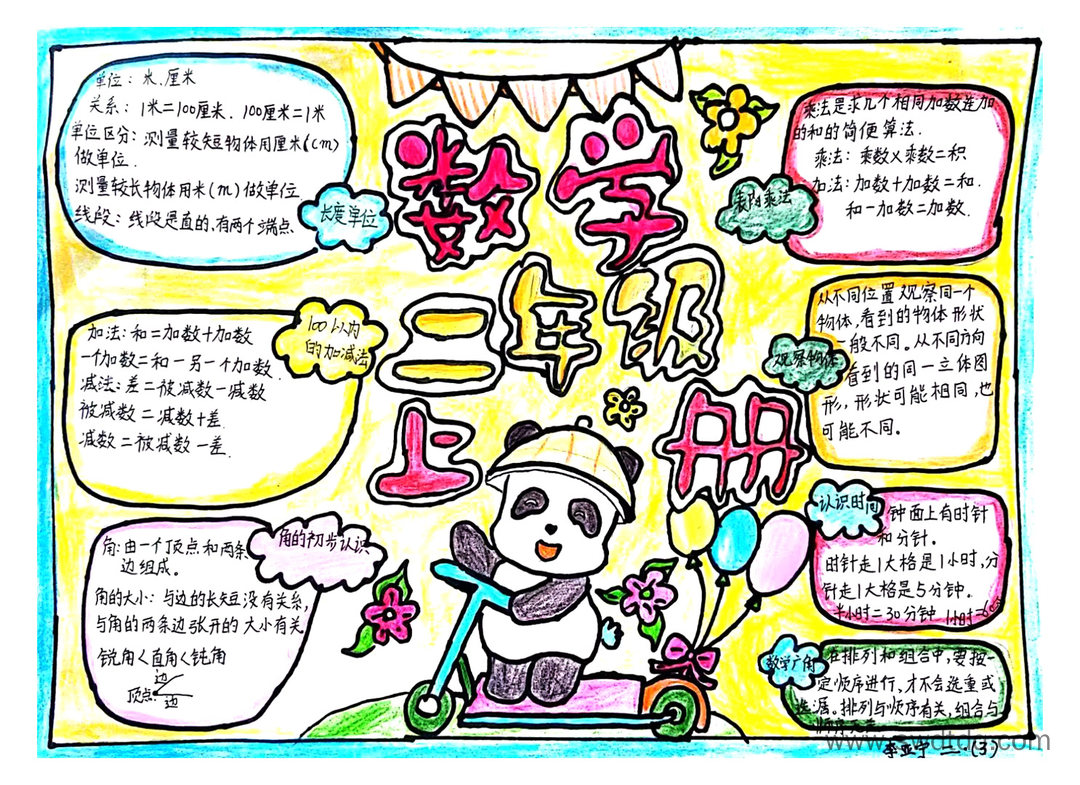 数学
二年级
上册
长度单位
单位：米、厘米
关系：1米=100厘米、100厘米=1米
单位区分：测量较短物体用厘米(cm)
做单位.
测量较长物体用米(m)做单位
线段：线段是直的,有两个端点
100以内
的加减法
加法:和=加数+加数
一个加数=和-另一个加数.
减法:差=被减数-减数
被减数=减数+差
减数=被减数-差.
角的初步认识
角:由一个顶点和两条
边组成。
角的大小:与边的长短没有关系,
与角的两条边张开的大小有关
锐角<直角<钝角
边
顶点
边
表内乘法
乘法是求几个相同加数连加
的和的简便算法.
乘法:乘数×乘数=积
加法:加数+加数=和.
和-加数=加数.
观察物体
从不同位置观察同一个
物体,看到的物体形状
一般不同。从不同方向
看到的同一立体图
形,形状可能相同,也
可能不同。
认识时间
钟面上有时针
和分针。
时针走1大格是1小时,分
针走1大格是5分钟。
半小时=30分钟 1小时=60分
数学广角
在排列和组合中,要按一
定顺序进行,才不会选重或
选漏。排列与顺序有关,组合与
顺序无关
李亚宁 二.(3)